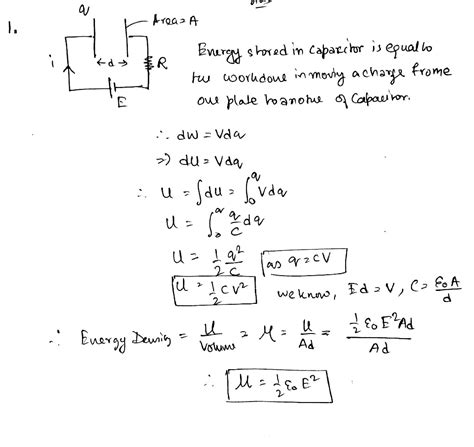 1.
q
Area = A
i
← d →
R
E
Energy stored in Capacitor is equal to
the workdone in moving a charge from e
one plate to another of Capacitor.
∴ dW = Vdq
=> dU = Vdq
∴ U = ∫dU = ∫₀^q Vdq
U = ∫₀^q q/C dq
U = 1/2 q²/C
as q = CV
U = 1/2 CV²
we know, Ed = V, C = ε₀A/d
∴ Energy Density = U/Volume = u = U/Ad = 1/2 ε₀E²Ad / Ad
∴ u = 1/2 ε₀ E²